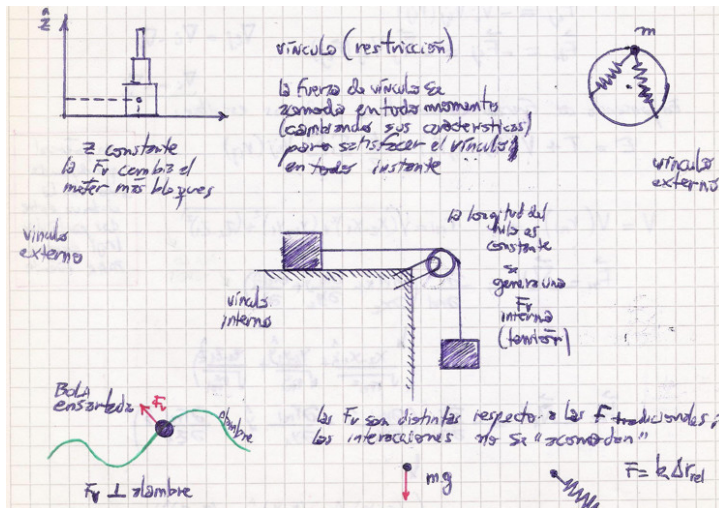 ẑ
z constante
la Fv cambia al
meter más bloques
vínculo (restricción)
la fuerza de vínculo se
acomoda en todo momento
(cambiando sus características)
para satisfacer el vínculo
en todo instante
m
vínculo
externo
vínculo
externo
vínculo
interno
la longitud del
hilo es
constante
se
genera una
Fv
interna
(tensión)
BOLA
ensartada
Fv
alambre
Fv ⊥ alambre
las Fv son distintas respecto a las F tradicionales;
las interacciones no se "acomodan"
m.g
F = k Δr_rel